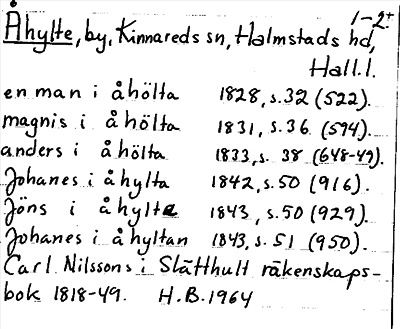 1-2+
Åhylte, by, Kinnareds sn, Halmstads hd,
Hall.l.
en man i åhölta 1828, s.32 (522).
magnis i åhölta 1831, s.36 (594).
anders i åhölta 1833, s. 38 (648-49).
Johanes i åhylta 1842, s.50 (916).
Jöns i åhylte 1843, s.50 (929).
Johanes i åhyltan 1843, s. 51 (950).
Carl Nilssons i Slätthult räkenskaps-
bok 1818-49. H.B. 1964